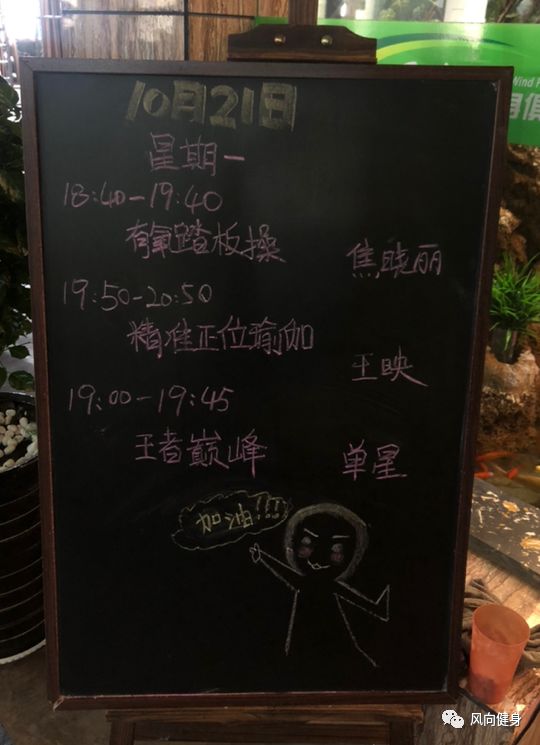 10月21日
星期一
18:40-19:40
有氧踏板操 焦晓丽
19:50-20:50
精准正位瑜伽
王映
19:00-19:45
王者巅峰 单星
加油!!!
Wind
风向健身